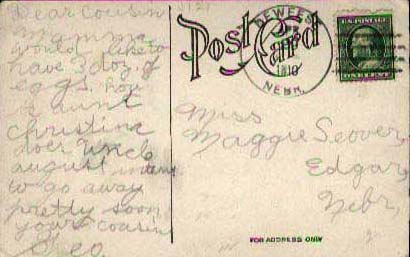 Dear Cousin
Mamma
would like to
have 3 doz. of
eggs. how
is aunt
christina
does Uncle
august intend
to go away
pretty soon
your cousin
Geo.
Post Card
DEWEESE
1910
NEBR.
U.S. POSTAGE
ONE CENT
Miss
Maggie Seover,
Edgar,
Nebr,
FOR ADDRESS ONLY